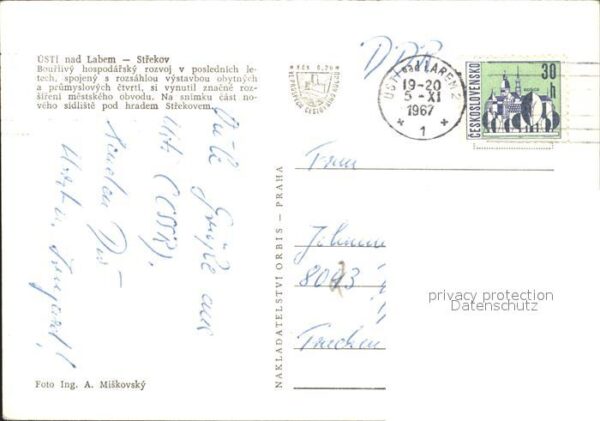 ÚSTÍ nad Labem — Střekov
Bouřlivý hospodářský rozvoj v posledních le-
tech, spojený s rozsáhlou výstavbou obytných
a průmyslových čtvrtí, si vynutil značné roz-
šíření městského obvodu. Na snímku část no-
vého sídliště pod hradem Střekovem.
Gute Grüße aus
(ČSSR),
Foto Ing. A. Miškovský
NAKLADATELSTVÍ ORBIS — PRAHA
DDR
ÚSTÍ nad LABEM 2
19-20
5.-XI
1967
1
ČESKOSLOVENSKO
30
h
Frau
Johanne
8093
privacy protection
Datenschutz